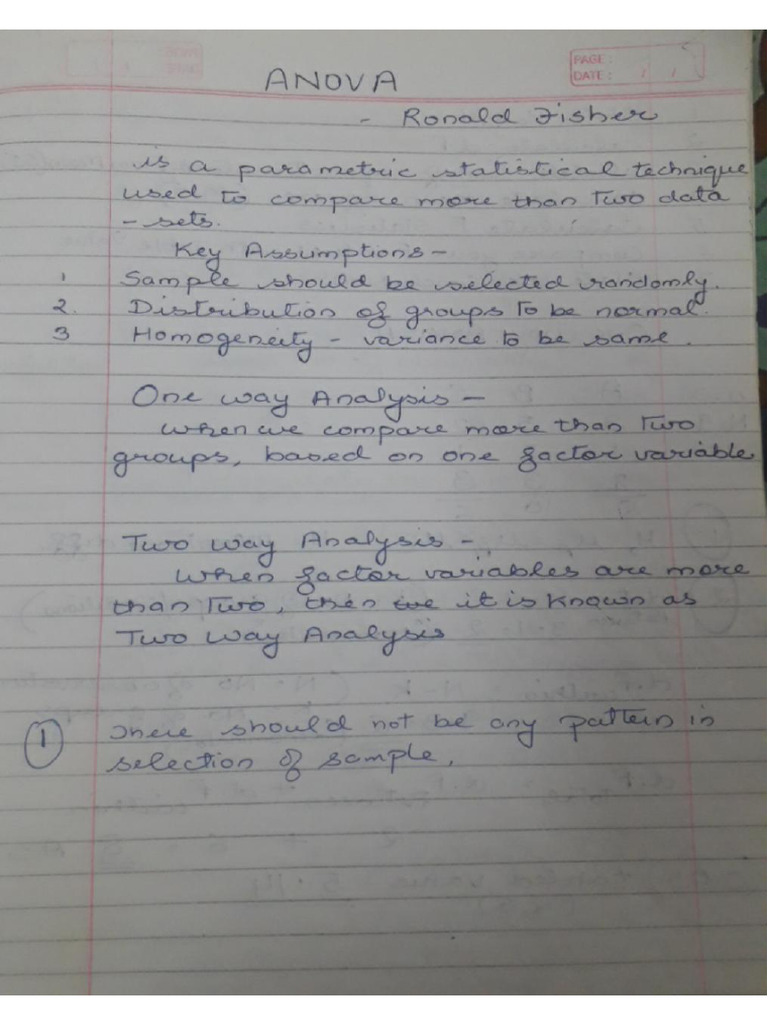 PAGE:
DATE: / /
ANOVA
- Ronald Fisher
is a parametric statistical technique
used to compare more than Two data
- sets.
Key Assumptions -
1 Sample should be selected randomly.
2. Distribution of groups to be normal.
3 Homogeneity - variance to be same.
One way Analysis -
when we compare more than Two
groups, based on one factor variable
Two way Analysis -
When factor variables are more
than Two, then we it is known as
Two Way Analysis
1 There should not be any pattern in
selection of sample.